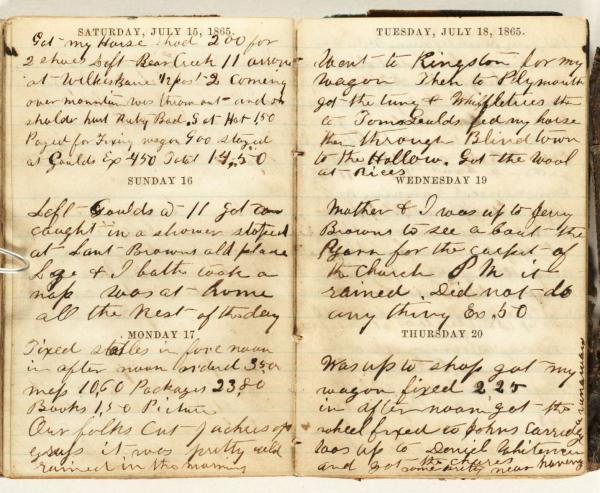 SATURDAY, JULY 15, 1865.
Got my Horse shod 200 for
2 shoes Left Bear Creek 11 arrove
at Wilkesbarre ½ past 2 coming
over mountain was thrown out and
sholder hurt Bad. Hat 150
Payed for fixing wagon 900 stayed
at Goulds Ex 450 Total 14,50
SUNDAY 16
Left Goulds at 11 got
caught in a shower stoped
at Browns old place
& I both took a
nap was at home
all the Rest of the day
MONDAY 17
Fixed in fore noon
in after noon
10,60 Packages 23,80
Books 1,50 Picture
Our folks cut
grass it was pretty
rained in the morning
TUESDAY, JULY 18, 1865.
Went to Kingston for my
wagon Then to Plymouth
got the tung & Whiffletrees then
to Tom Goulds fed my horse
then through Blindtown
to the Hollow. Got the wool
at Rices
WEDNESDAY 19
Mother & I was up to Jerry
Browns to see a bout the
yarn for the carpet of
the Church P M it
rained Did not do
any thing Ex ,50
THURSDAY 20
Was up to shop got my
wagon fixed 2 25
in after noon got the
wheel fixed to Johns
was up to Daniel
and got the
some pretty near